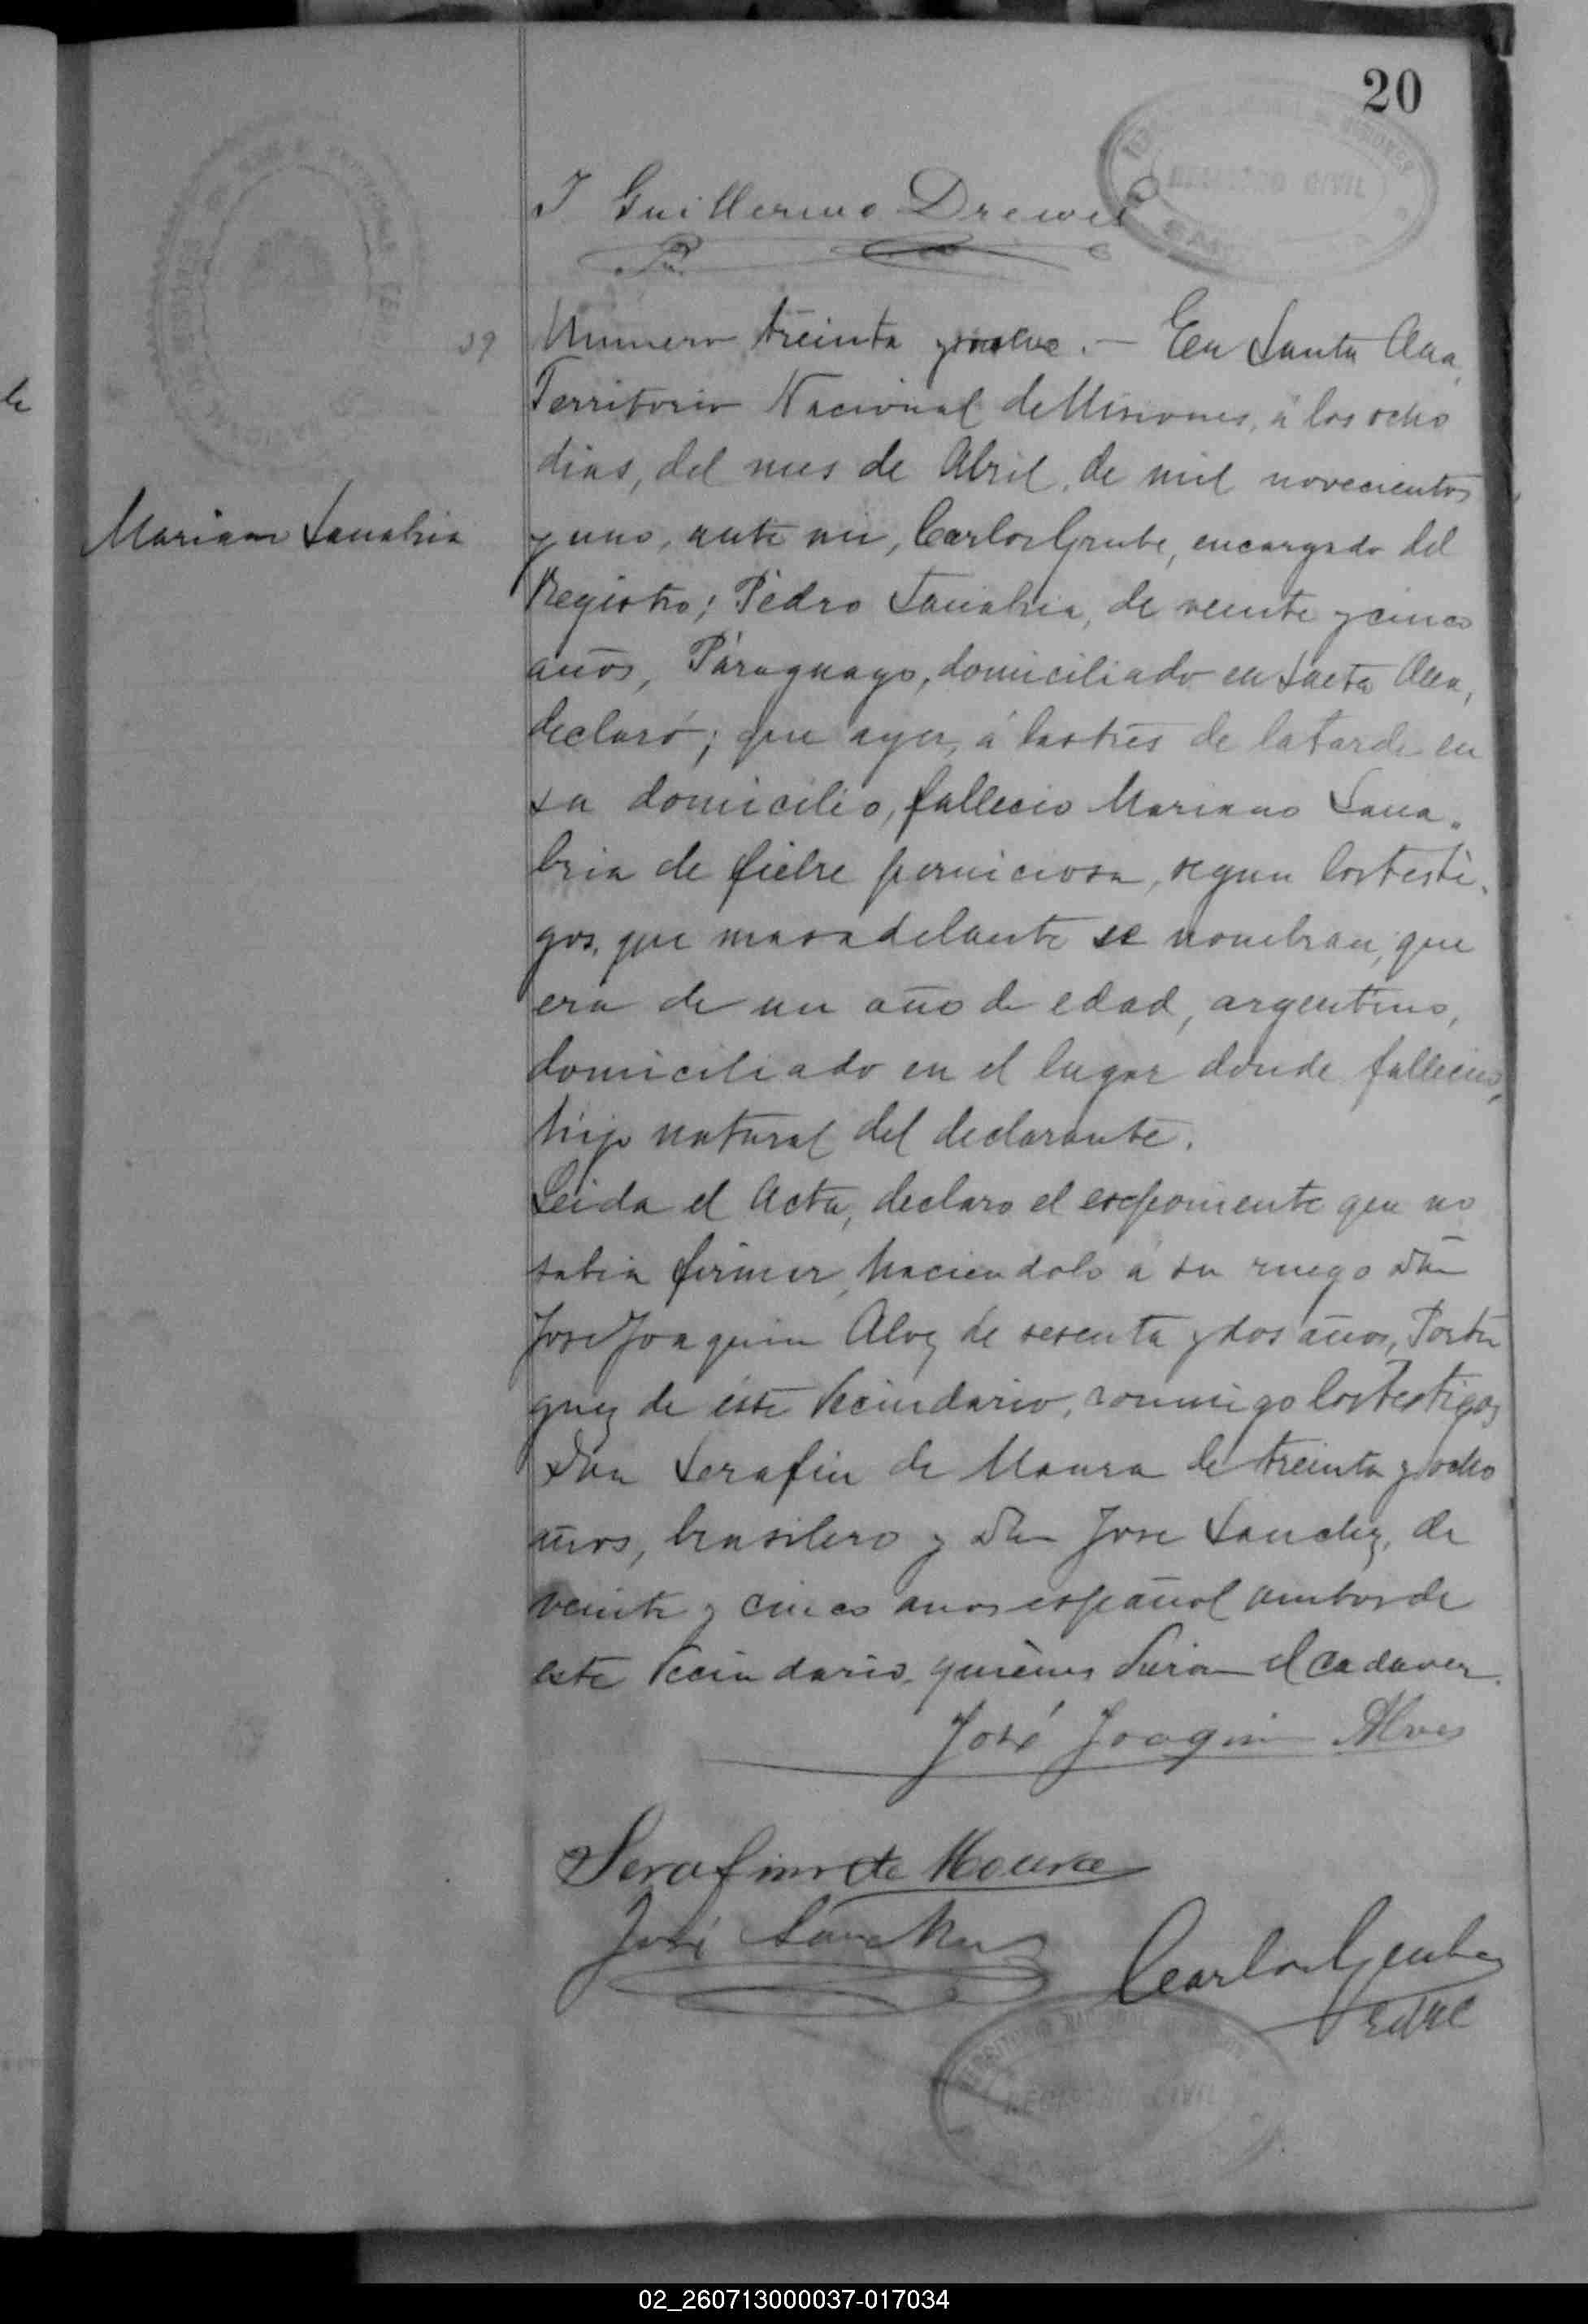 20
REGISTRO CIVIL
J Guillermo Drewes
39
Numero treinta y nueve. — En Santa Ana,
Territorio Nacional de Misiones, á los ocho
dias, del mes de Abril, de mil novecientos
Mariano Sanabria
y uno, ante mi, Carlos Grube, encargado del
Registro; Pedro Sanabria, de veinte y cinco
años, Paraguayo, domiciliado en Santa Ana,
declaró; que ayer, á las tres de la tarde en
su domicilio, fallecio Mariano Sana-
bria de fiebre perniciosa, segun los testi-
gos, que mas adelante se nombran, que
era de un año de edad, argentino,
domiciliado en el lugar donde fallecio,
hijo natural del declarante.
Leida el Acta, declaro el exponente que no
sabia firmar, haciendolo á su ruego Don
Jose Joaquin Alvez de sesenta y dos años, Portu
guez de éste Vecindario, conmigo los testigos
Don Serafin de Moura de treinta y ocho
años, brasilero y Don Jose Sanchez, de
veinte y cinco anos español ambos de
este Vecindario, quiénes vieron el cadaver.
José Joaquin Alves
Serafim de Moura
José Sanchez
Carlos Grube
TERRITORIO NACIONAL
REGISTRO CIVIL
02_260713000037-017034